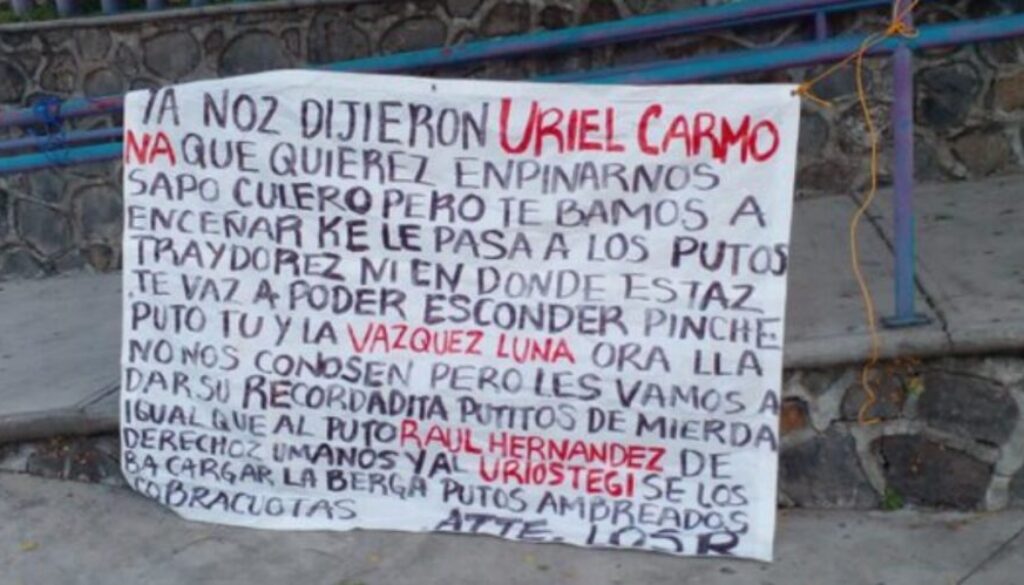 YA NOZ DIJIERON URIEL CARMO
NA QUE QUIEREZ ENPINARNOS
SAPO CULERO PERO TE BAMOS A
ENCEÑAR KE LE PASA A LOS PUTOS
TRAYDOREZ NI EN DONDE ESTAZ
TE VAZ A PODER ESCONDER PINCHE
PUTO TU Y LA VAZQUEZ LUNA ORA LLA
NO NOS CONOSEN PERO LES VAMOS A
DAR SU RECORDADITA PUTITOS DE MIERDA
IGUAL QUE AL PUTO RAUL HERNANDEZ DE
DERECHOZ UMANOS Y AL URIOSTEGI SE LOS
BA CARGAR LA BERGA PUTOS AMBREADOS
COBRACUOTAS ATTE. LOS R